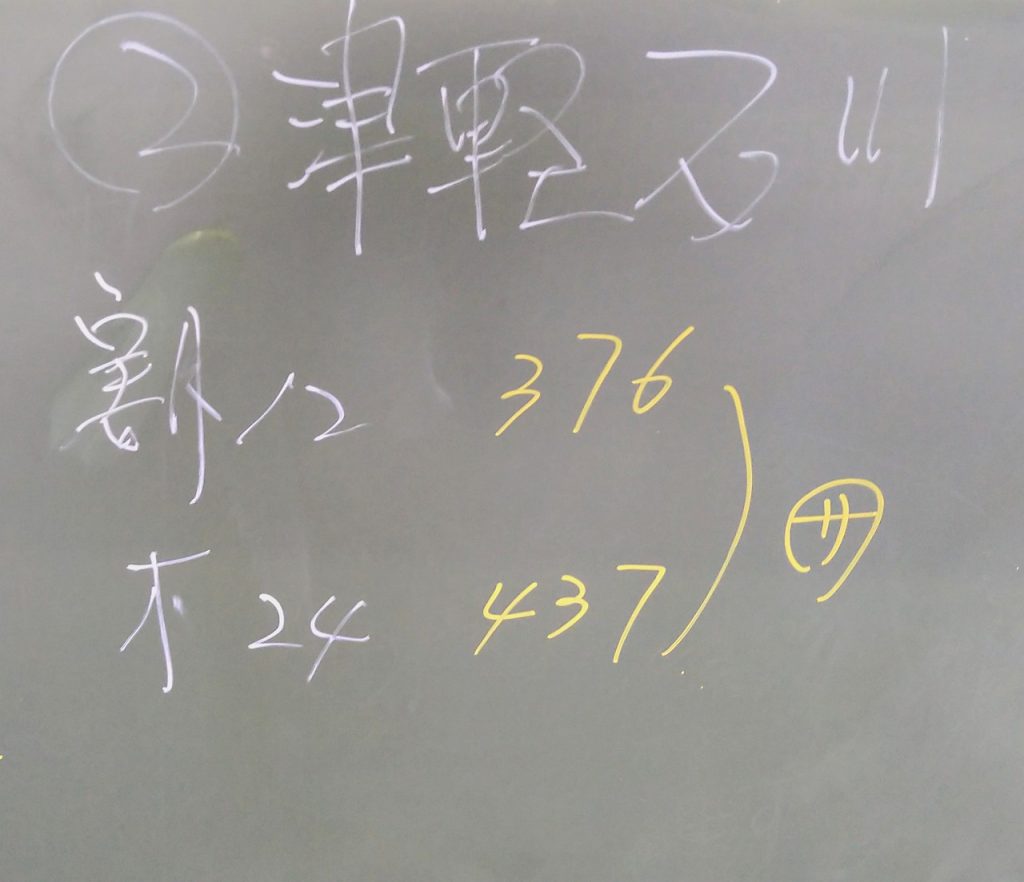 ② 津軽石川
割12 376
不24 437